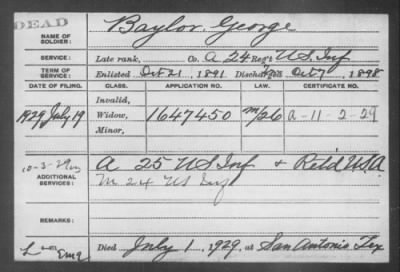 DEAD
NAME OF SOLDIER: Baylor, George
SERVICE: Late rank, Co. A 24 Reg't U.S. Inf
TERM OF SERVICE: Enlisted Oct 21, 1891, Discharged Oct 7, 1898
DATE OF FILING. CLASS. APPLICATION NO. LAW. CERTIFICATE NO.
Invalid,
1929 July 19 Widow, 1647450 m/26 a-11-2-29
Minor,
10-3-29
ADDITIONAL SERVICES: A 25 US Inf + Ret'd U.S.A
M 24 US Inf
REMARKS:
Died July 1, 1929, at San Antonio Tex